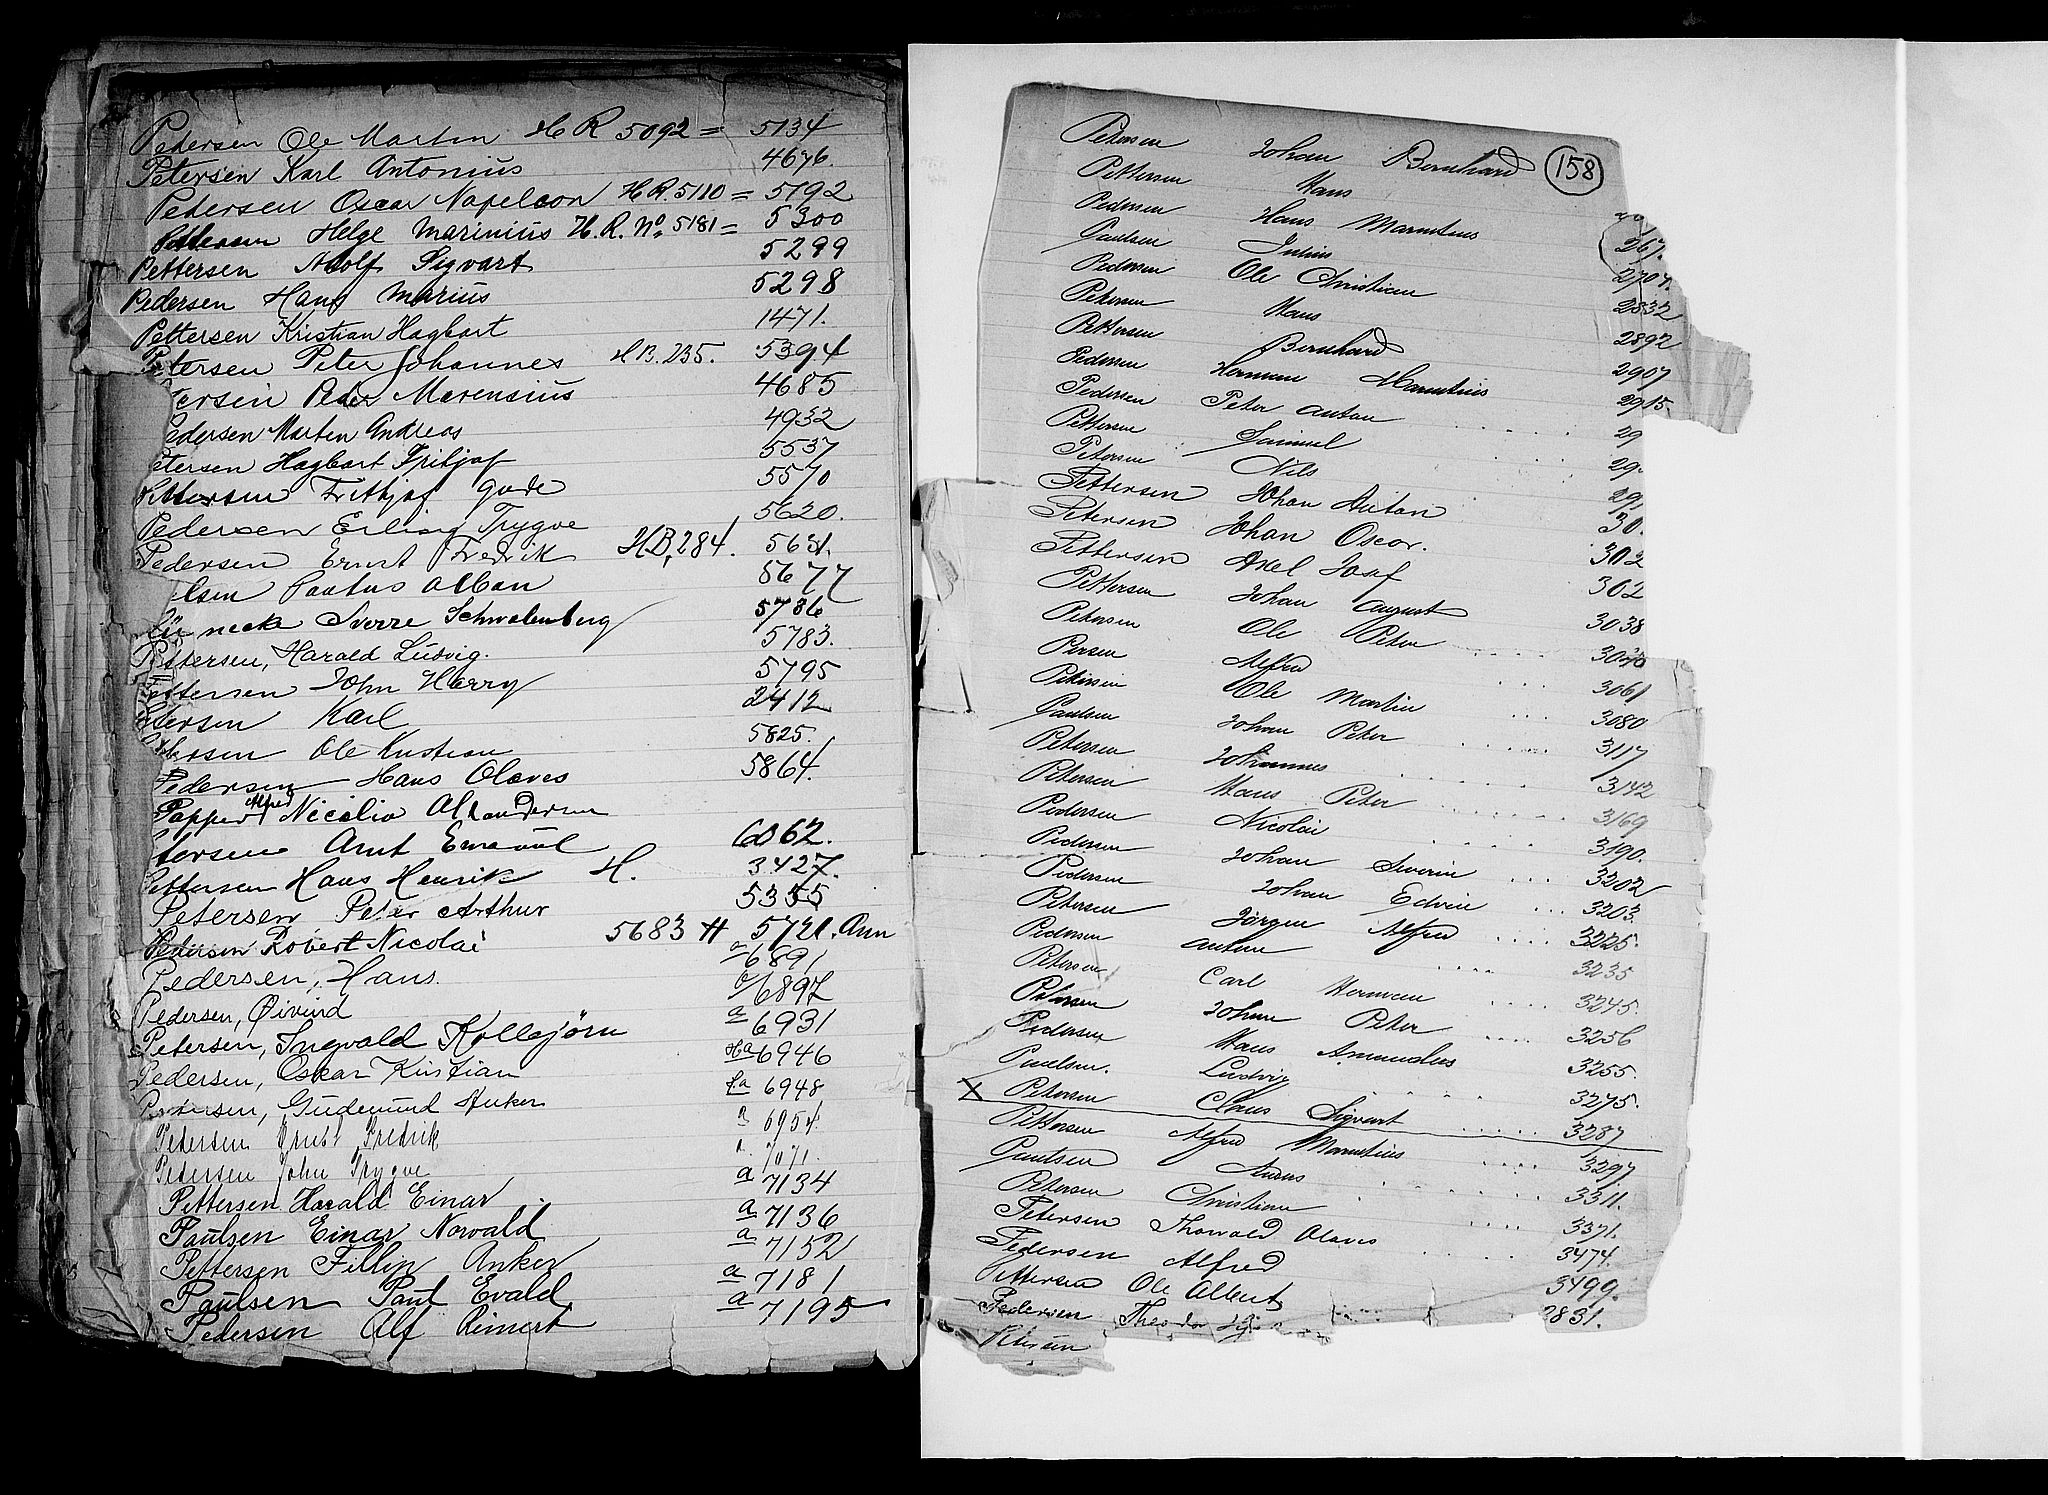 Pedersen Ole Martin H R 5092 = 5134
Petersen Karl Antonius 4676.
Pedersen Oscar Napeleon H.R. 5110 = 5192
Pettersen Helge Marinius H.R. No. 5181 = 5300
Pettersen Adolf Sigvart 5299
Pedersen Hans Marius 5298
Pettersen Kristian Hagbart 1471.
Petersen Peter Johannes H B. 235. 5394
tersen Peder Marensius 4685
edersen Marten Andreas 4932
etersen Hagbart Fritjof 5537
Pettersen Frithjof Gode 5570
Pedersen Erling Trygve 5620.
Pedersen Ernst Fredrik H.B, 284. 5631.
lsen Paulus Alban 5677
necke Sverre Schwalenberg 5786
Pettersen, Harald Ludvig. 5783.
Pettersen John Harry 5795
etersen Karl 2412
ersen Ole Kristian 5825.
Pedersen Hans Olaves 5864.
Papper Alfred Nicolio Alexandersen
tersen Arnt Emanuel 6062.
Pettersen Hans Henrik H. 3427.
Petersen Peter Arthur 5355
Pedersen Robert Nicolai 5683 H 5721. Ann
Pedersen, Hans. a 6891
Pedersen, Øivind a/6897
Petersen, Ingvald Kollbjørn a 6931
Pedersen, Oskar Kristian Ha 6946
Pedersen, Gudmund Anker La 6948
Pedersen Ernst Fredrik a 6954.
Pedersen John Trygve a. 7071.
Pettersen Harald Einar a 7134
Paulsen Einar Norvald a 7136
Pettersen Fillip Anker a 7152
Paulsen Paul Evald a 7181
Pedersen Alf Reinert a 7195
158
Petersen Johan Bernhard
Pettersen Hans
Pedersen Hans Marntius 267.
Paulsen Julius 2707.
Pedersen Ole Christian 2832
Petersen Hans 2892
Pettersen Bernhard 2907
Pedersen Herman Marntius 2915.
Pedersen Peter Anton 29
Pettersen Samuel 29.
Petersen Nils 291
Pettersen Johan Anton 30.
Petersen Johan Oscar. 302
Pettersen Axel Josef 302
Pettersen Johan August 3038
Petersen Ole Peter 3040
Persen Alfred 3061
Petersen Ole Martin 3080
Paulsen Johan Peter 3117
Petersen Johannes 3142
Petersen Hans Peter 3169
Pedersen Nicolai 3190.
Pedersen Johan Severin 3202
Pedersen Johan Edvin 3203.
Petersen Jørgen Alfred 3225.
Pedersen Anton 3235
Petersen Carl Herman 3245.
Petersen Johan Peter 3256
Pedersen Hans Amandus 3255.
Paulsen. Ludvig 3275.
X Petersen Claus Sigvart 3287
Pettersen Alfred Marntius 3297
Paulsen 3311.
Petersen Christian 3371.
Petersen Thorvald Olaves 3474.
Pedersen Alfred 3499.
Pettersen Ole Albert 2831.
Pedersen Theodor
Petersen